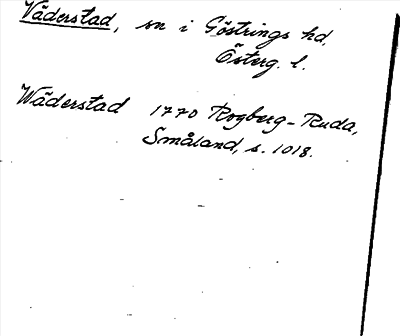 Väderstad, sn i Göstrings hd,
Österg. l.
Wäderstad 1770 Rogberg-Ruda,
Småland, s. 1018.